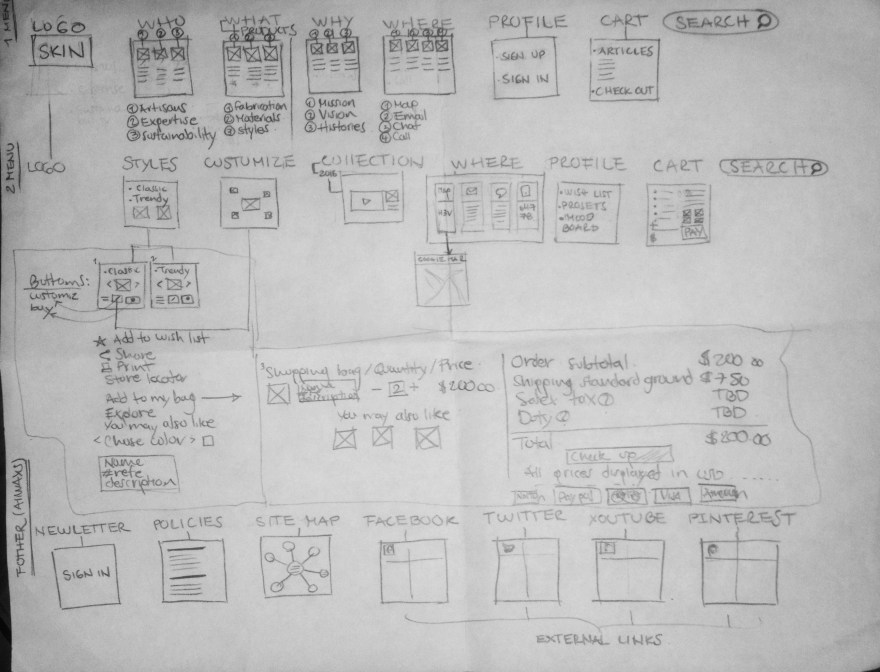 1 MENU
LOGO
SKIN
WHO
① ② ③
① Artisans
② Expertise
③ Sustainability
WHAT
PRODUCTS
① ② ③
① Fabrication
② Materials
③ Styles
WHY
① ② ③
① Mission
② Vision
③ Histories
WHERE
① ② ③ ④
① Map
② Email
③ Chat
④ Call
PROFILE
• SIGN UP
• SIGN IN
CART
• ARTICLES
• CHECK OUT
SEARCH
2 MENU
LOGO
STYLES
• Classic
• Trendy
CUSTUMIZE
COLLECTION
2016
WHERE
PROFILE
• WISH LIST
• MOOD
BOARD
CART
PAY
SEARCH
1
• Classic
2
• Trendy
Buttoms:
customize
buy
Add to wish list
Share
Print
Store locator
Add to my bag
Explore
You may also like
< Chose color >
Name
description
Shopping bag / Quantity / Price
- 2 + $200.00
You may also like
Order subtotal $200.00
Shipping standard ground $7.50
Sales tax TBD
Duty TBD
Total $200.00
Check up
All prices displayed in USD .....
Paypal
Visa
FOTHER (ALWAYS)
NEWLETTER
SIGN IN
POLICIES
SITE MAP
FACEBOOK
TWITTER
YOUTUBE
PINTEREST
EXTERNAL LINKS